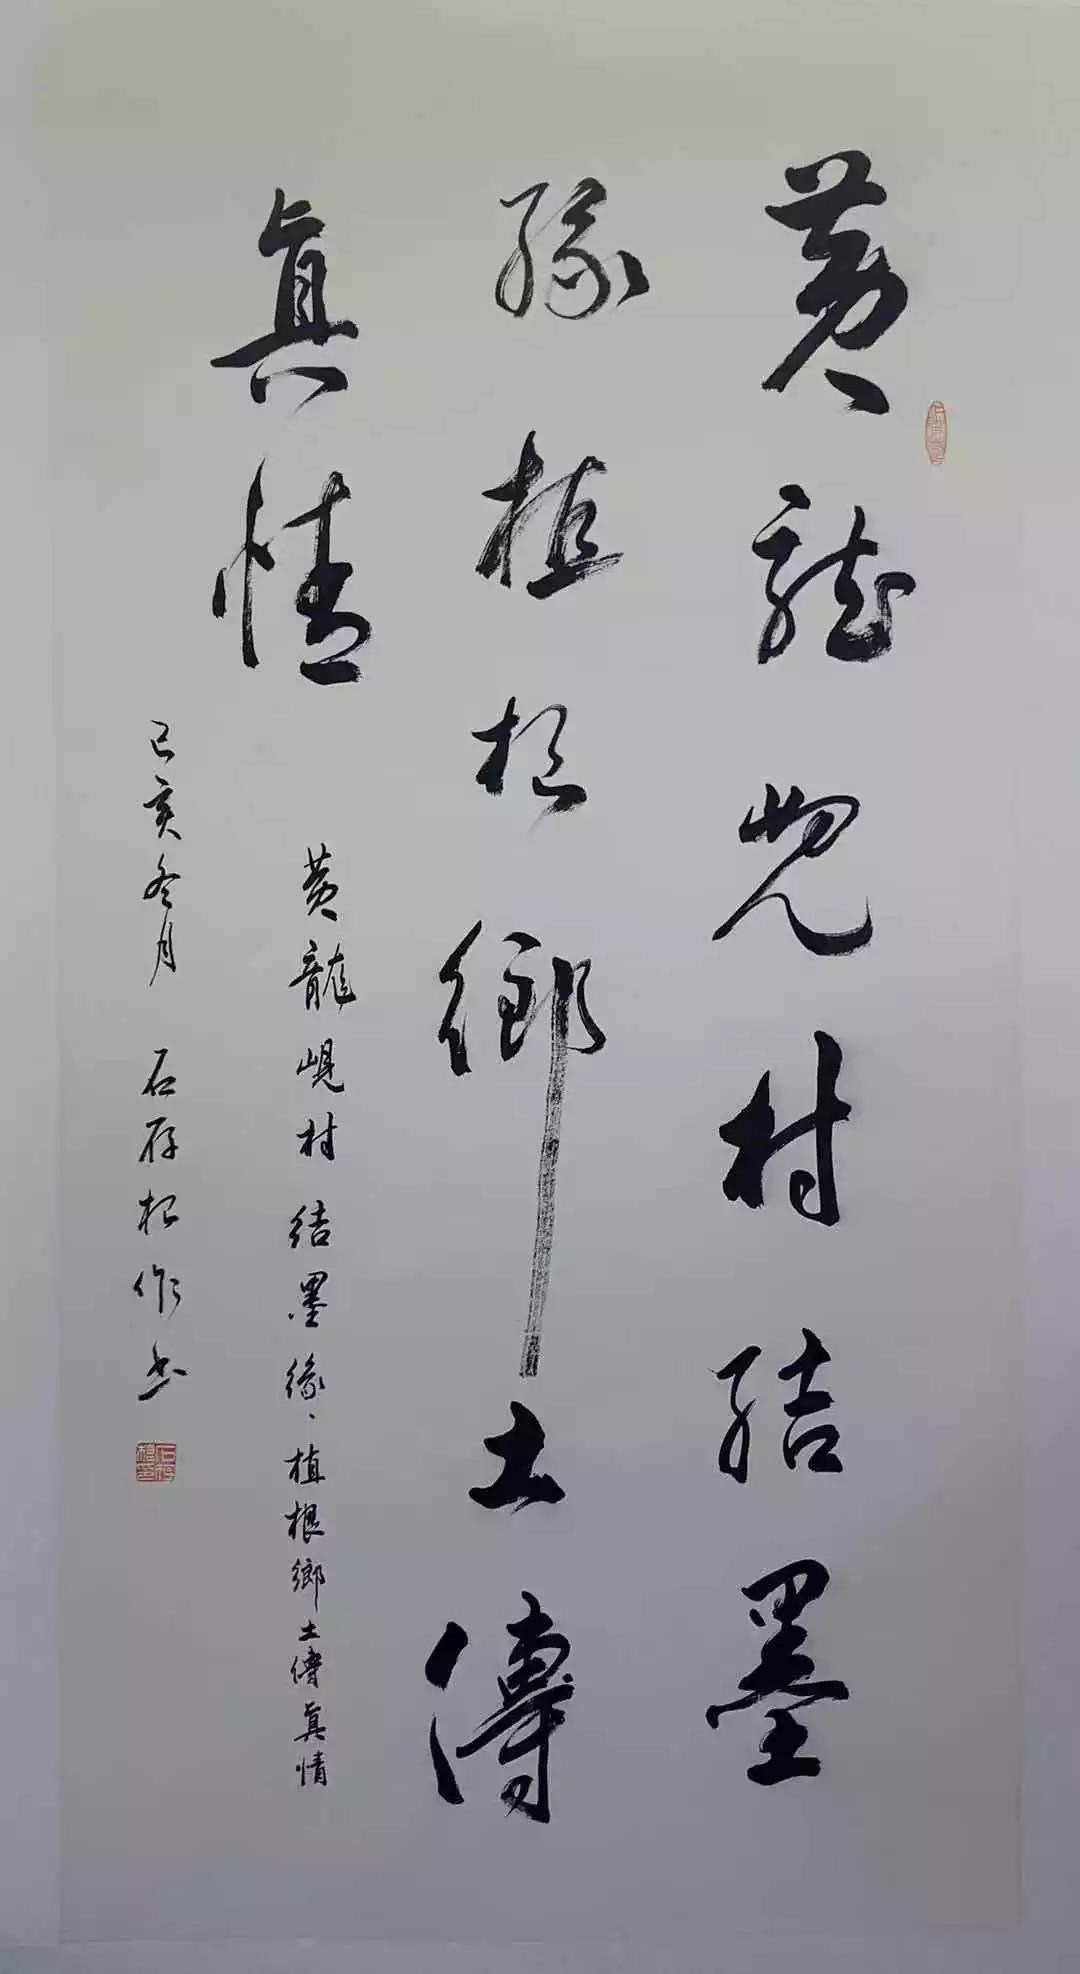 黄龍峴村結墨
緣植根鄉土傳
真情
黄龍峴村結墨緣、植根鄉土傳真情
己亥冬月 石存根作书